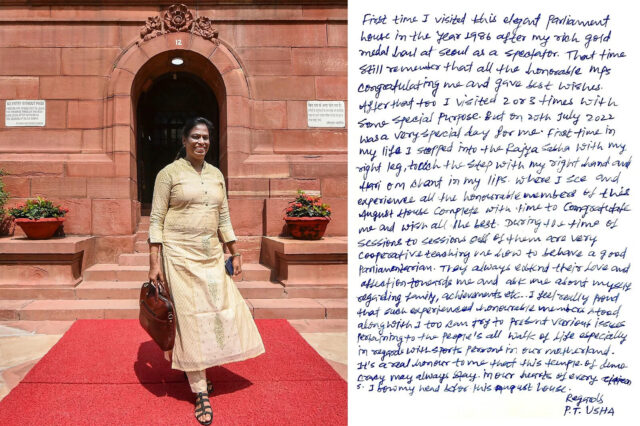 12
First time I visited this elegant Parliament
house in the year 1986 after my rich gold
medal haul at seoul as a spectator. That time
still remember that all the honorable MPs
congratulating me and gave best wishes.
After that too I visited 2 or 3 times with
some special purpose. But on 20th July 2022
was a very special day for me. First time in
my life I stepped into the Rajya Sabha with my
right leg, touch the step with my right hand and
Hari om chant in my lips. Where I see and
experience all the honourable members of this
August House complete with time to Congratulate
me and wish all the best. During the time of
sessions to sessions all of them are very
cooperative teaching me how to behave a good
Parliamentarian. They always extend their love and
affection towards me and ask me about myself
regarding family, achievements etc.. I feel really proud
that such experienced honourable members stood
along with I too can try to present various issues
pertaining to the people's all walk of life especially
in regards with sports persons in our motherland.
It's a real honour to me that this temple of demo
cracy may always stay in our hearts of every citizen
s. I bow my head before this august house.
Regards
P.T. USHA